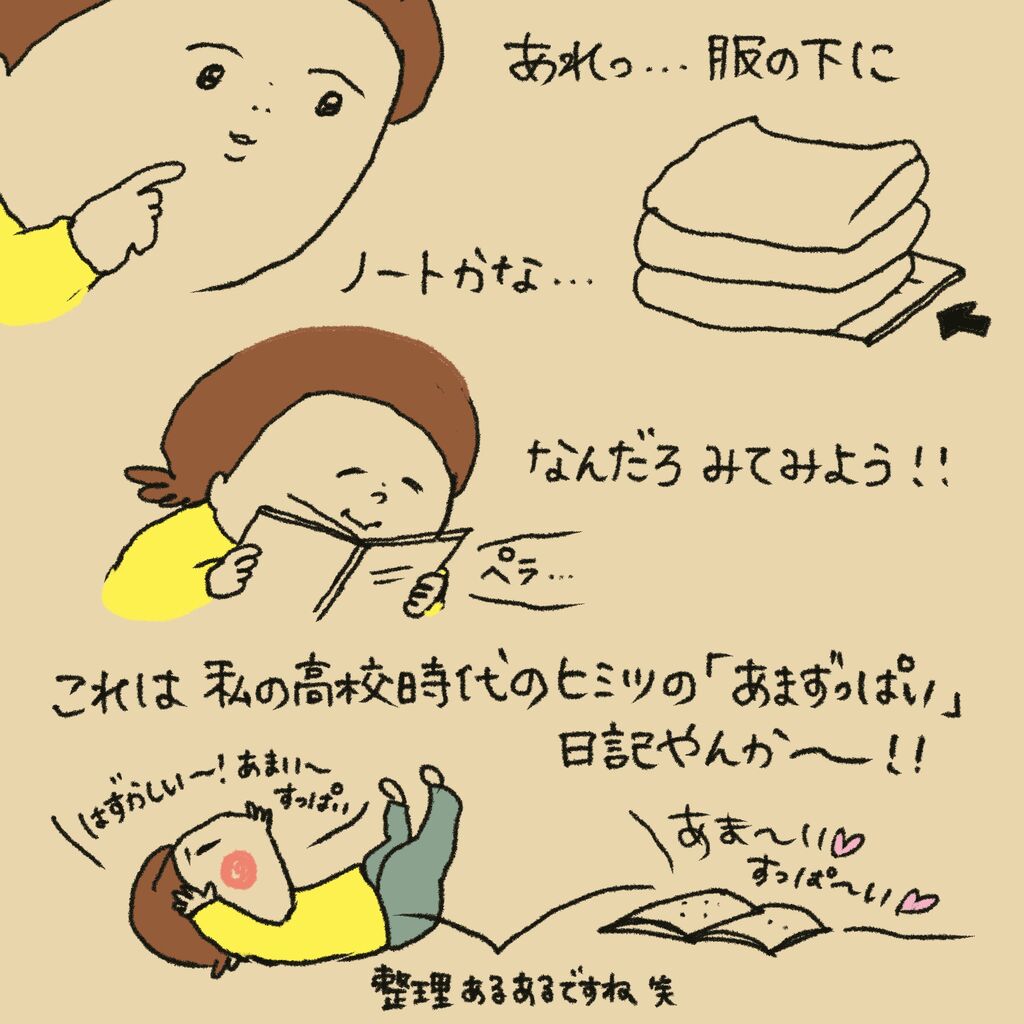 あれっ...服の下に
ノートかな...
なんだろ みてみよう!!
ペラ...
これは 私の高校時代のヒミツの「あまずっぱい」
日記やんか〜!!
はずかしい〜!あまい〜
すっぱい
あま〜い
すっぱ〜い
整理あるあるですね 笑